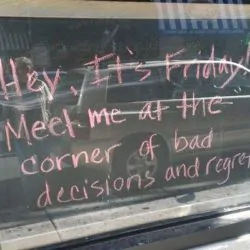 Hey, It's Friday!
Meet me at the
corner of bad
decisions and regret